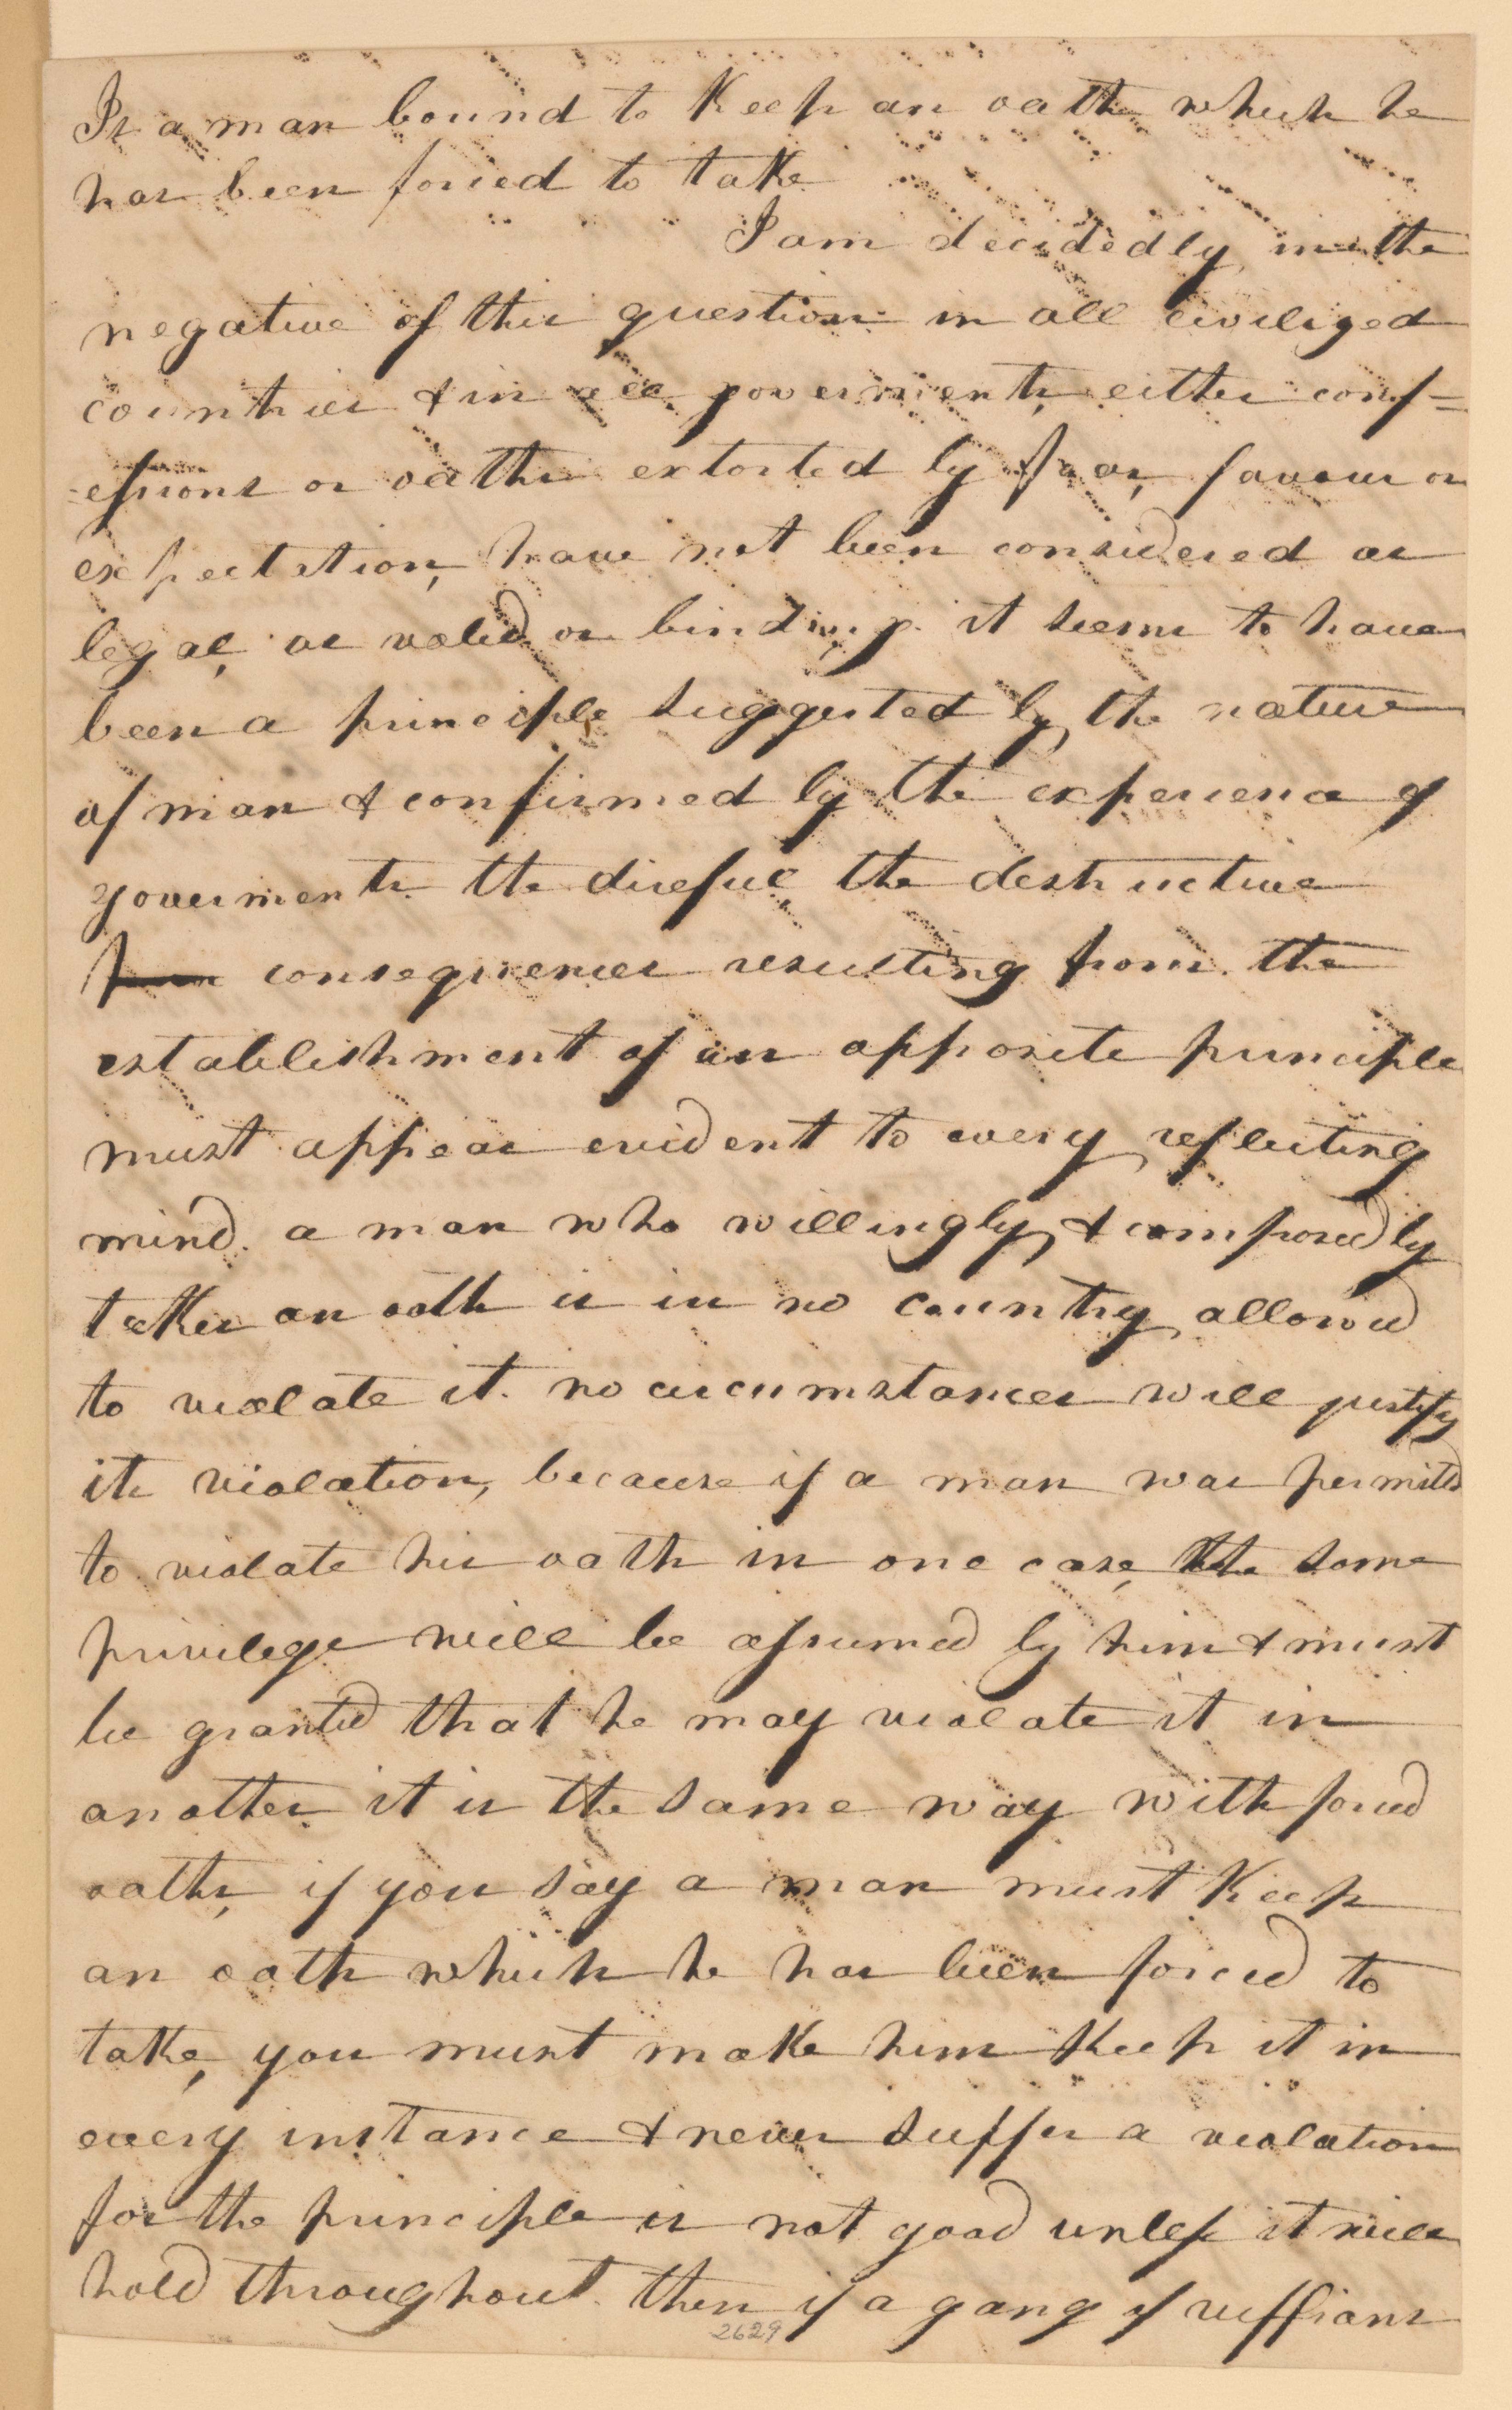 Is a man bound to Keep an oath which he
has been forced to take
I am decidedly in the
negative of this question in all civilized
countries & in all goverments, either conf=
=essions or oaths extorted by fear, favour or
expectation, have not been considered as
legal, as valid or binding. it seems to have
been a principle suggested by the nature
of man & confirmed by the experience of
goverments. the direful, the destructive
consequences resulting from the
establishment of an opposite principle
must appear evident to every reflecting
mind. a man who willingly, & composedly
takes an oath is in no country allowed
to violate it. no circumstances will justify
its violation, because if a man was permited
to violate his oath in one case, the same
privilege will be assumed by him & must
be granted that he may violate it in
another. it is the same way with forced
oaths, if you say a man must Keep
an oath which he has been forced to
take, you must make him Keep it in
every instance & never suffer a violation
for the principle is not good unless it will
hold throughout. then if a gang of ruffians
2629